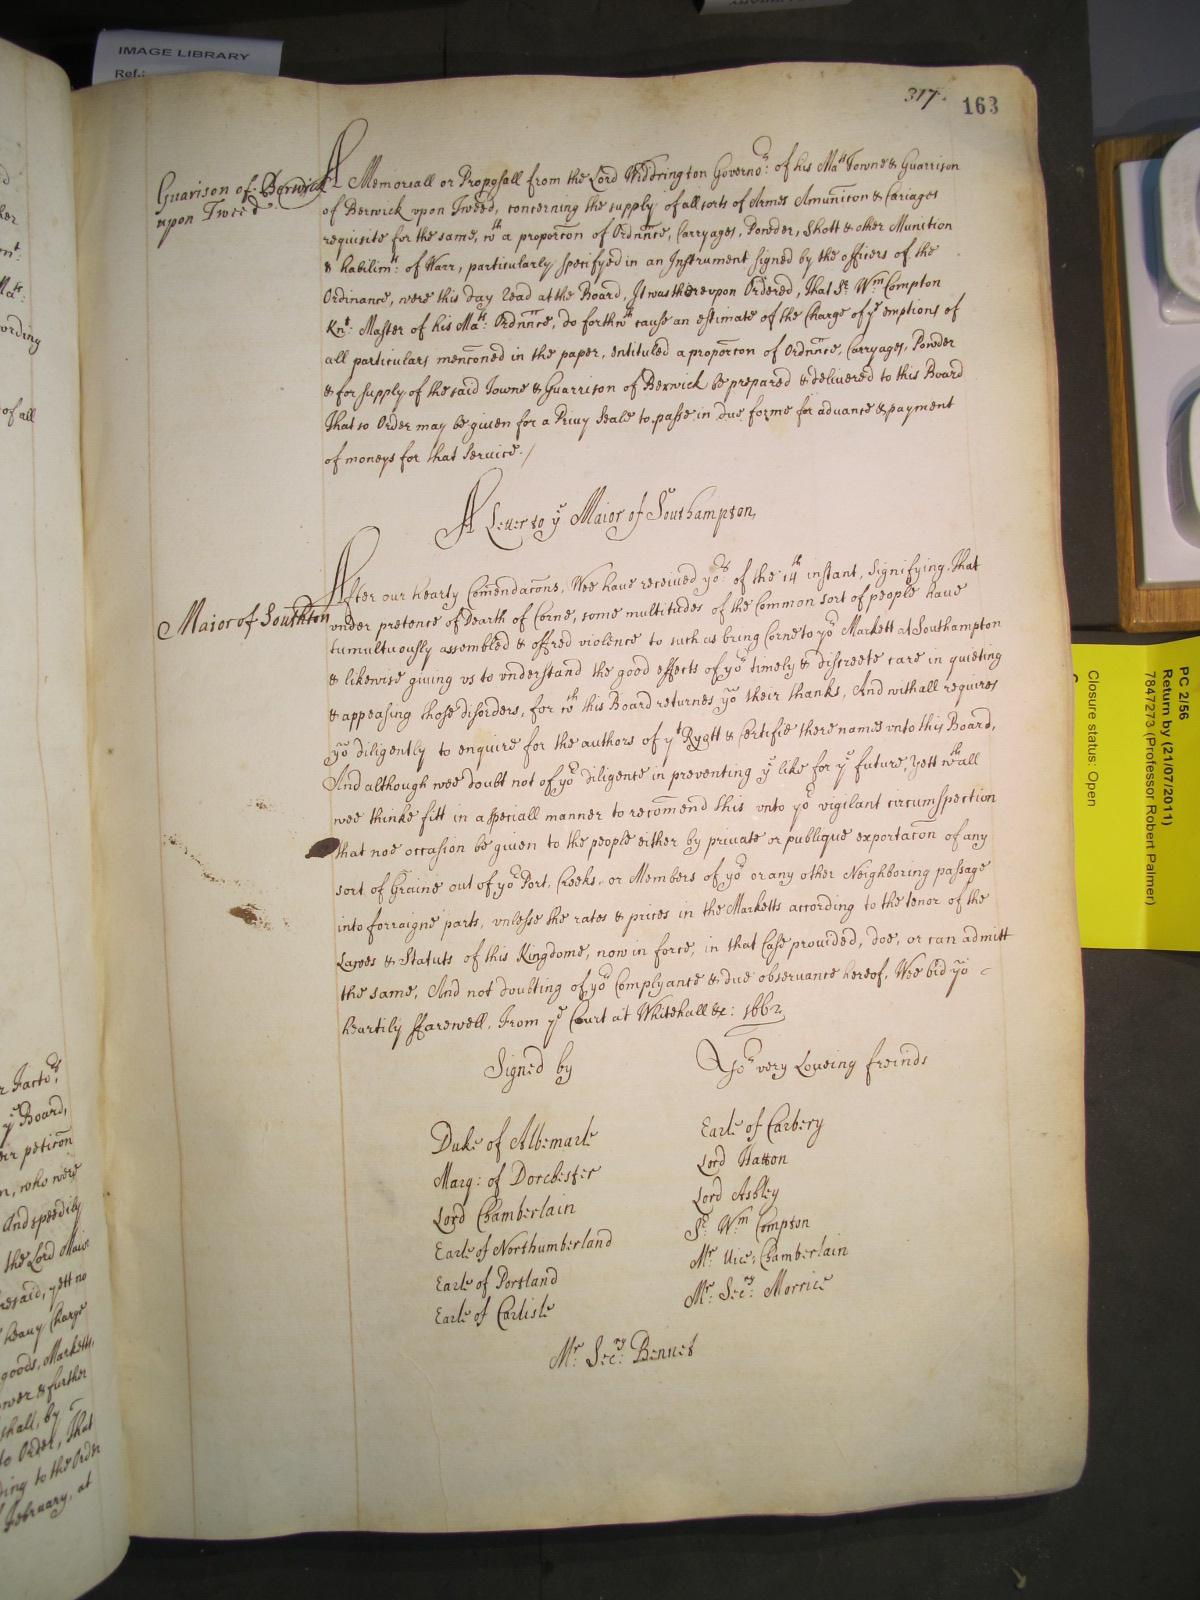 IMAGE LIBRARY
Ref.:
317.
163
Guarison of Berwick
upon Tweed
A Memoriall or Proposall from the Lord Widdrington Governor: of his Mats Towne & Guarrison
of Berwick vpon Tweed, concerning the supply of all sorts of Armes Amunicon & Cariages
requisite for the same, wth a proporcon of Ordnnce, Carryages, Powder, Shott & other Munition
& habilimts: of Warr, particularly specifyed in an Instrument signed by the officers of the
Ordinance, were this day read at the Board, It was therevpon Ordered, That Sr. Wm Compton
Knt: Master of his Mats: Ordnnce, do forthwth cause an estimate of the Charge of ye emptions of
all particulars menconed in the paper, entituled a proporcon of Ordnnce, Carryages, Powder
& for supply of the said Towne & Guarrison of Berwick be prepared & delivered to this Board
That so Order may be giuen for a Priuy Seale to passe in due forme for aduance & payment
of moneys for that Seruice./
A Letter to ye Maior of Southampton,
Maior of Southton
After our hearty Comendacons, Wee haue receiued yors: of the 14th instant, signifying, That
vnder pretence of Dearth of Corne, some multitudes of the Common sort of people haue
tumultuously assembled & offred violence to such as bring Corne to yor Markett at Southampton
& likewise giuing vs to vnderstand the good effects of yor timely & discreete care in quieting
& appeasing those disorders, for wch this Board returnes you their thanks, And withall requires
you diligently to enquire for the authors of yt Ryott & Certifie there names vnto this Board,
And although wee doubt not of yor diligence in preventing ye like for ye future, yett wthall
wee thinke fitt in a speciall manner to recomend this vnto yor vigilant circumspection
that noe occasion be giuen to the people either by private or publique exportacon of any
sort of Graine out of yor Port, Creeks, or Members of yor or any other Neighboring passage
into forraigne parts, vnlesse the rates & prices in the Marketts according to the tenor of the
Lawes & Statuts of this Kingdome, now in force, in that Case prouided, doe, or can admitt
the same, And not doubting of yor Complyance & due observance hereof, Wee bid you
heartily ffarewell, From ye Court at Whitehall &c: 1662,
Signed by
Yor very Loueing freinds
Duke of Albemarle
Marq: of Dorchester
Lord Chamberlain
Earle of Northumberland
Earle of Portland
Earle of Carlisle
Earle of Carbery
Lord Hatton
Lord Ashley
Sr. Wm Compton
Mr. Uice: Chamberlain
Mr: Secry: Morrice
Mr. Secry: Bennet
PC 2/56
Return by (21/07/2011)
7847273 (Professor Robert Palmer)
Closure status: Open
of all
r Factors
ye Board,
eir peticon
n, who were
And speedily
the Lord Maior
resaid, yett no
heauy Charge
goods, Marketts,
ower & further
shall, by
to Order, That
ding to the Order
February, at